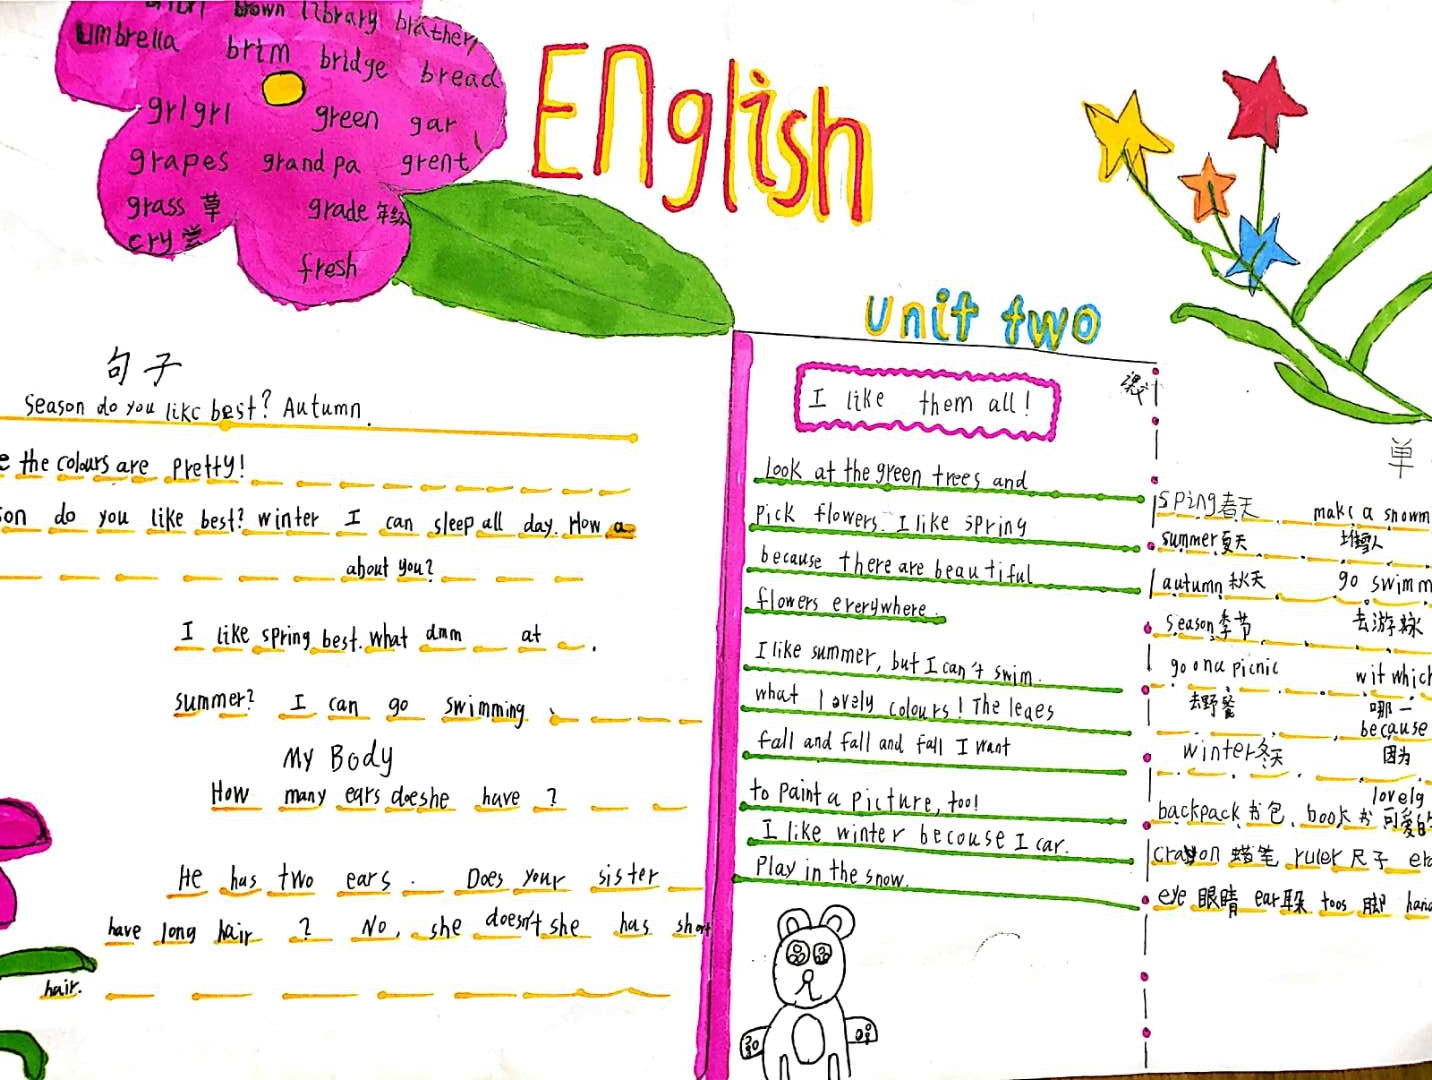 brown library
umbrella brim bridge bread
grlgrl green gar
grapes grandpa grent
grass 草 grade 年级
cry 尝
fresh
English
unit two
句子
season do you like best? Autumn.
the colours are pretty!
son do you like best? winter I can sleep all day. How a
about you?
I like spring best. what dmm at .
summer? I can go swimming
My Body
How many ears doeshe have ?
He has two ears . Does your sister
have long hair ? No, she doesn't she has short
hair.
课文
I like them all!
Look at the green trees and
pick flowers. I like spring
because there are beautiful
flowers ererywhere.
I like summer, but I can't swim.
what lovely colours! The leaes
fall and fall and fall I want
to paint a picture, too!
I like winter becouse I car.
Play in the snow.
单
sping 春天 make a snowm
summer 夏天 堆雪人
autumn 秋天 go swimm
season 季节 去游泳
go ona picnic which
去野餐 哪一
because
winter 冬天 因为
lovely
backpack 书包 book 书 可爱的
crayon 蜡笔 ruler 尺子 era
eye 眼睛 ear 朵 toos 脚 hand